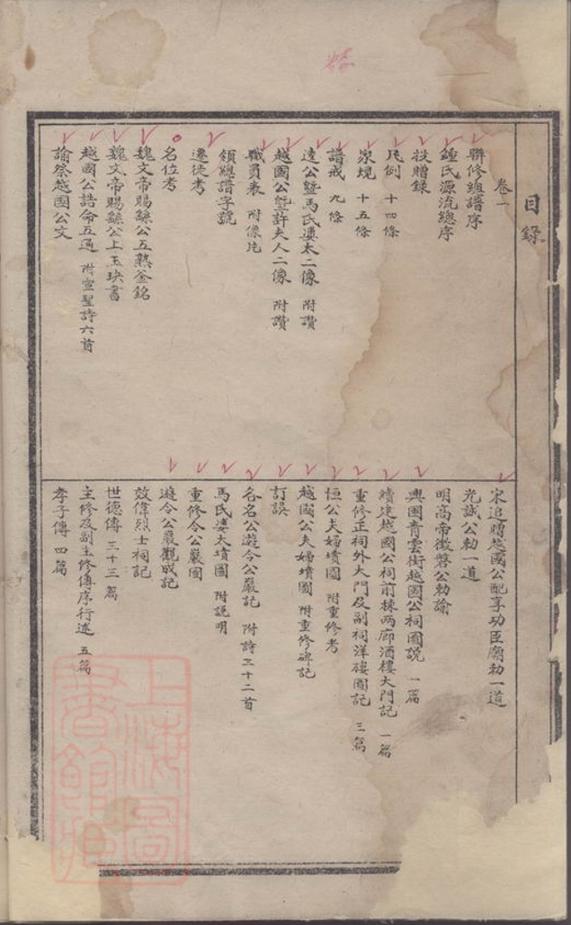 目錄
卷一
聯修總譜序
鍾氏源流總序
投贈錄
凡例 十四條
家規 十五條
譜戒 九條
遠公暨馬氏婆太二像 附讚
越國公暨許夫人二像 附讚
職員表 附像片
領總譜字號
遷徙考
名位考
魏文帝賜繇公五熟釜銘
魏文帝賜繇公上玉玦書
越國公誥命五通 附宣聖詩六首
諭祭越國公文
宋追贈越國公配享功臣廟勅一道
光誠公勅一道
明高帝徵磬公勅諭
興國青雲街越國公祠圖說 一篇
續建越國公祠前棟兩廊酒樓大門記 一篇
重修正祠外大門及副祠洋樓圖記 三篇
恒公夫婦墳圖 附重修考
越國公夫婦墳圖 附重修碑記
訂誤
各名公遊令公巖記 附詩三十二首
馬氏婆太墳圖 附說明
重修令公巖圖
遊令公巖觀成記
效偉烈士祠記
世德傳 三十三篇
主修及副主修傳序行述 五篇
孝子傳 四篇
上海圖書館藏